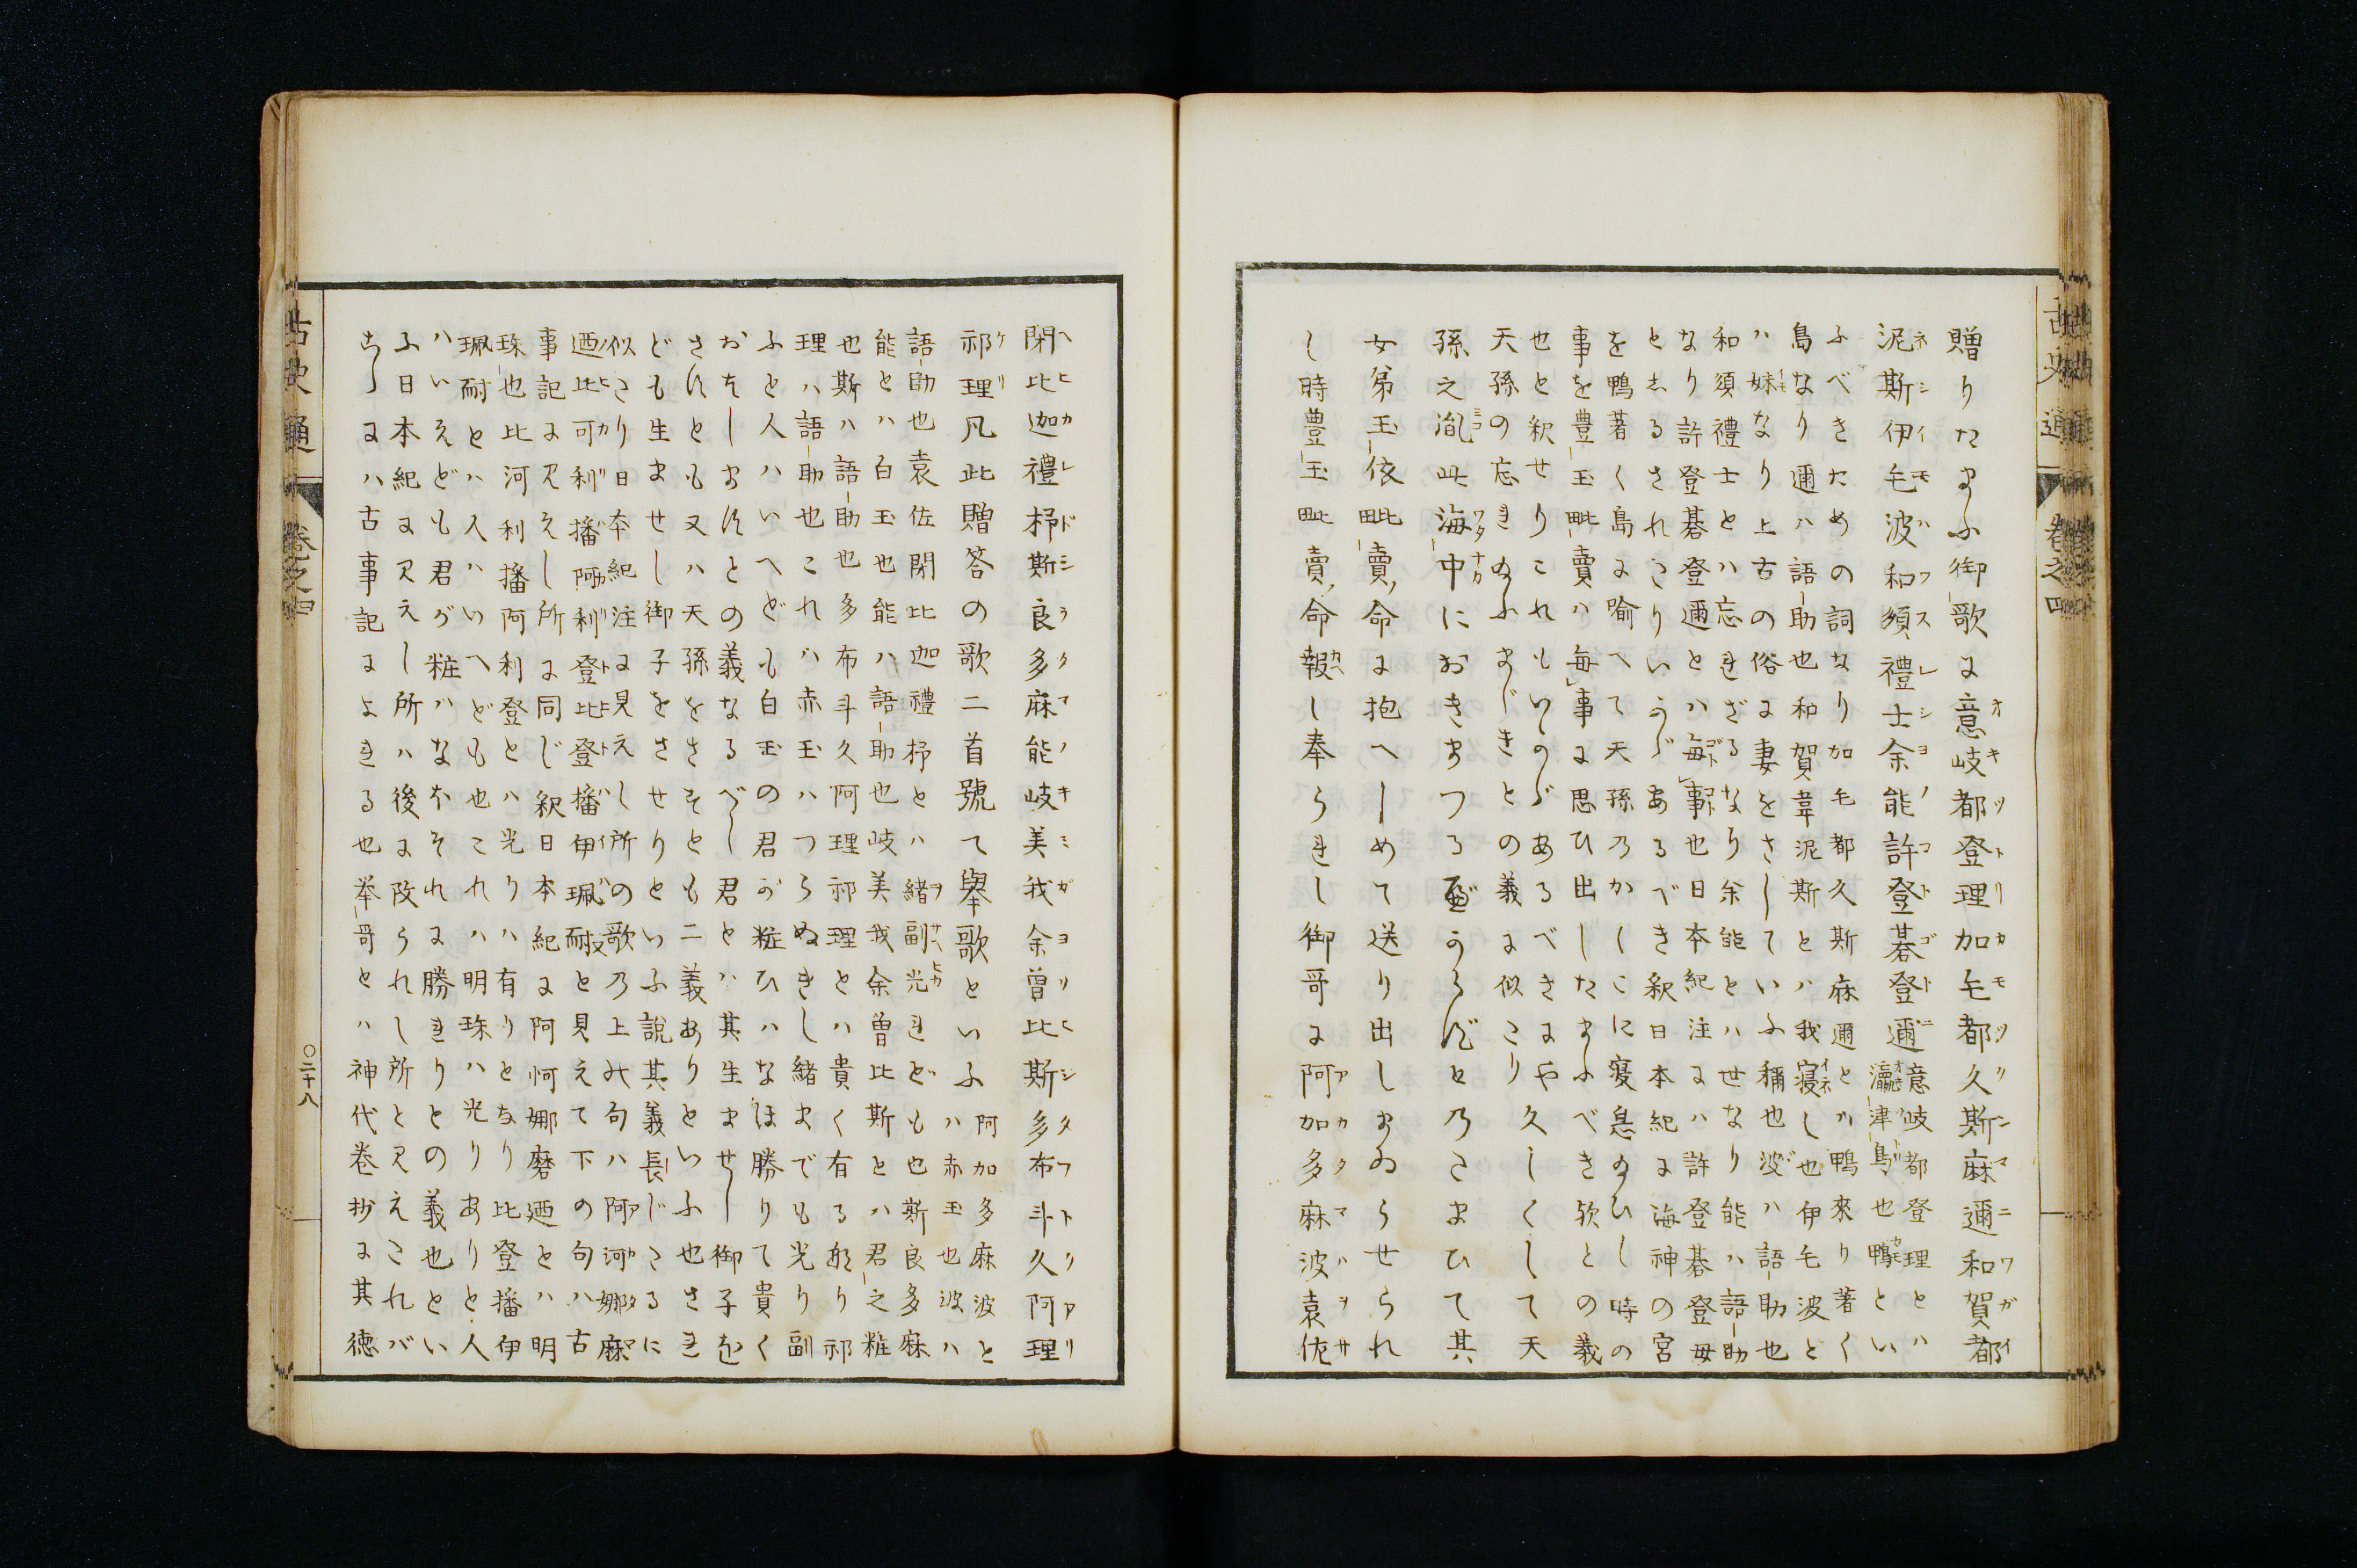 贈りたまふ御歌に意岐都登理加毛都久斯麻邇和賀韋
泥斯伊毛波和須禮士余能許登碁登邇
意岐都登理とハ
瀛津鳥也鴨とい
ふべきための詞なり加毛都久斯麻邇とハ鴨來り著く
島なり邇ハ語助也和賀韋泥斯とハ我寝し也伊毛波と
ハ妹なり上古の俗に妻をさしていふ稱也波ハ語助也
和須禮士とハ忘れざるなり余能とハせなり能ハ語助
なり許登碁登邇とハ毎事也日本紀注にハ許登碁登母
としるされたりいかゞあるべき釈日本紀に海神の宮
を鴨著く島に喩へて天孫乃かしこに寝息給ひし時の
事を豊玉毗賣ハ毎事に思ひ出したまふべき歟との義
也と釈せりこれもいかゞあるべきにや久しくして天
天孫の忘れ給ふまじきとの義に似たり
孫之胤此海中におきまつるべからずと乃たまひて其
女弟玉依毗賣命に抱へしめて送り出しまゐらせられ
し時豊玉毗賣命報し奉られし御哥に阿加多麻波袁佐
古史通
巻之四
閇比迦禮杼斯良多麻能岐美我余曾比斯多布斗久阿理
祁理凡此贈答の歌二首號て擧歌といふ
阿加多麻波と
ハ赤玉也波ハ
語助也袁佐閇比迦禮杼とハ緒副光れども也斯良多麻
能とハ白玉也能ハ語助也岐美我余曾比斯とハ君之粧
也斯ハ語助也多布斗久阿理祁理とハ貴く有る那り祁
理ハ語助也これハ赤玉ハつらぬきし緒までも光り副
ふと人ハいへども白玉の君が粧ひハなほ勝りて貴く
おをしますとの義なるべし君とハ其生ませし御子を
さすとも又ハ天孫をさすとも二義ありといふ也され
ども生ませし御子をさせりといふ説其義長じたるに
似たり日本紀注に見えし所の歌乃上の句ハ阿河娜麻
迺比可利播阿利登比登播伊珮耐と見えて下の句ハ古
事記に見えし所に同じ釈日本紀に阿河娜磨迺とハ明
珠也比河利播阿利登とハ光りハ有りとなり比登播伊
珮耐とハ人ハいへども也これハ明珠ハ光りありと人
ハいへども君が粧ハなほそれに勝れりとの義也とい
ふ日本紀に見えし所ハ後に改られし所と見えたれバ
こゝにハ古事記によれる也挙哥とハ神代巻抄に其徳
古史通
巻之四
〇二十八